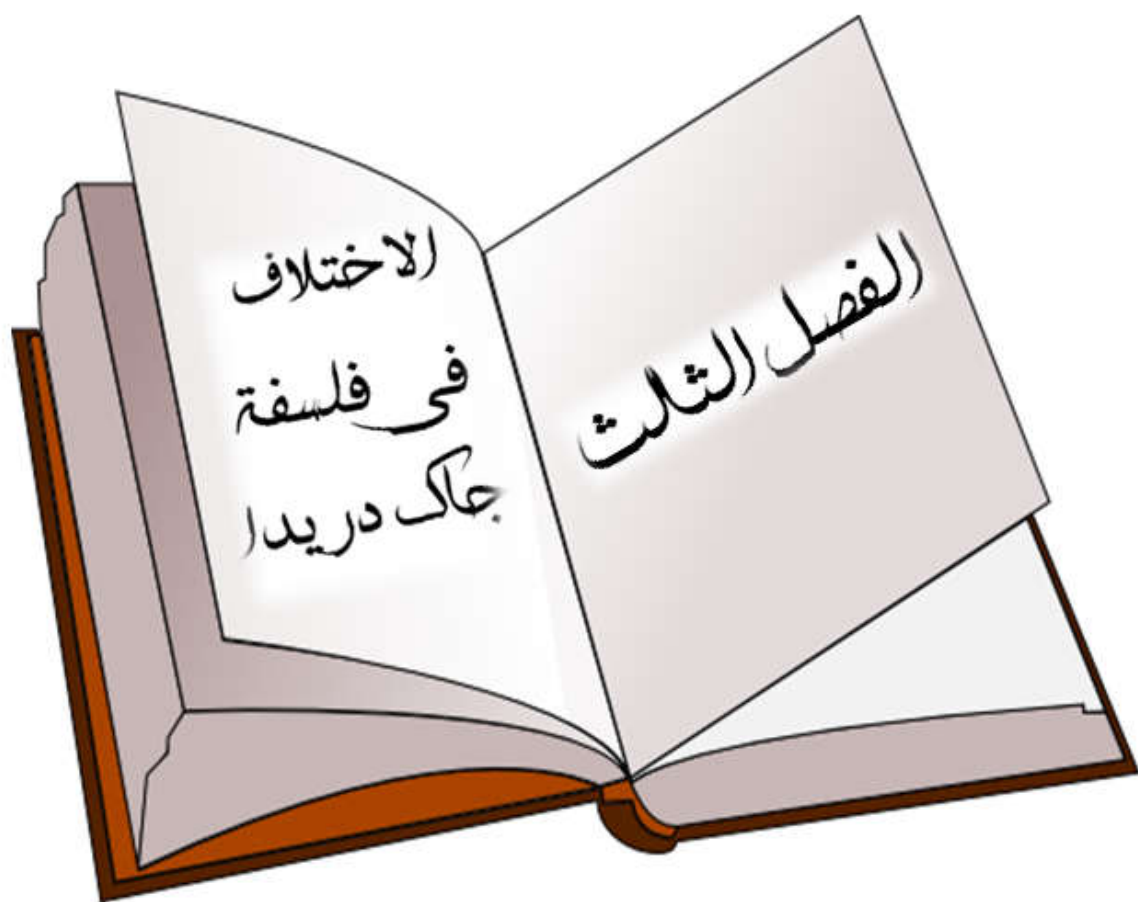 الفصل الثالث
الاختلاف
في فلسفة
جاك دريدا